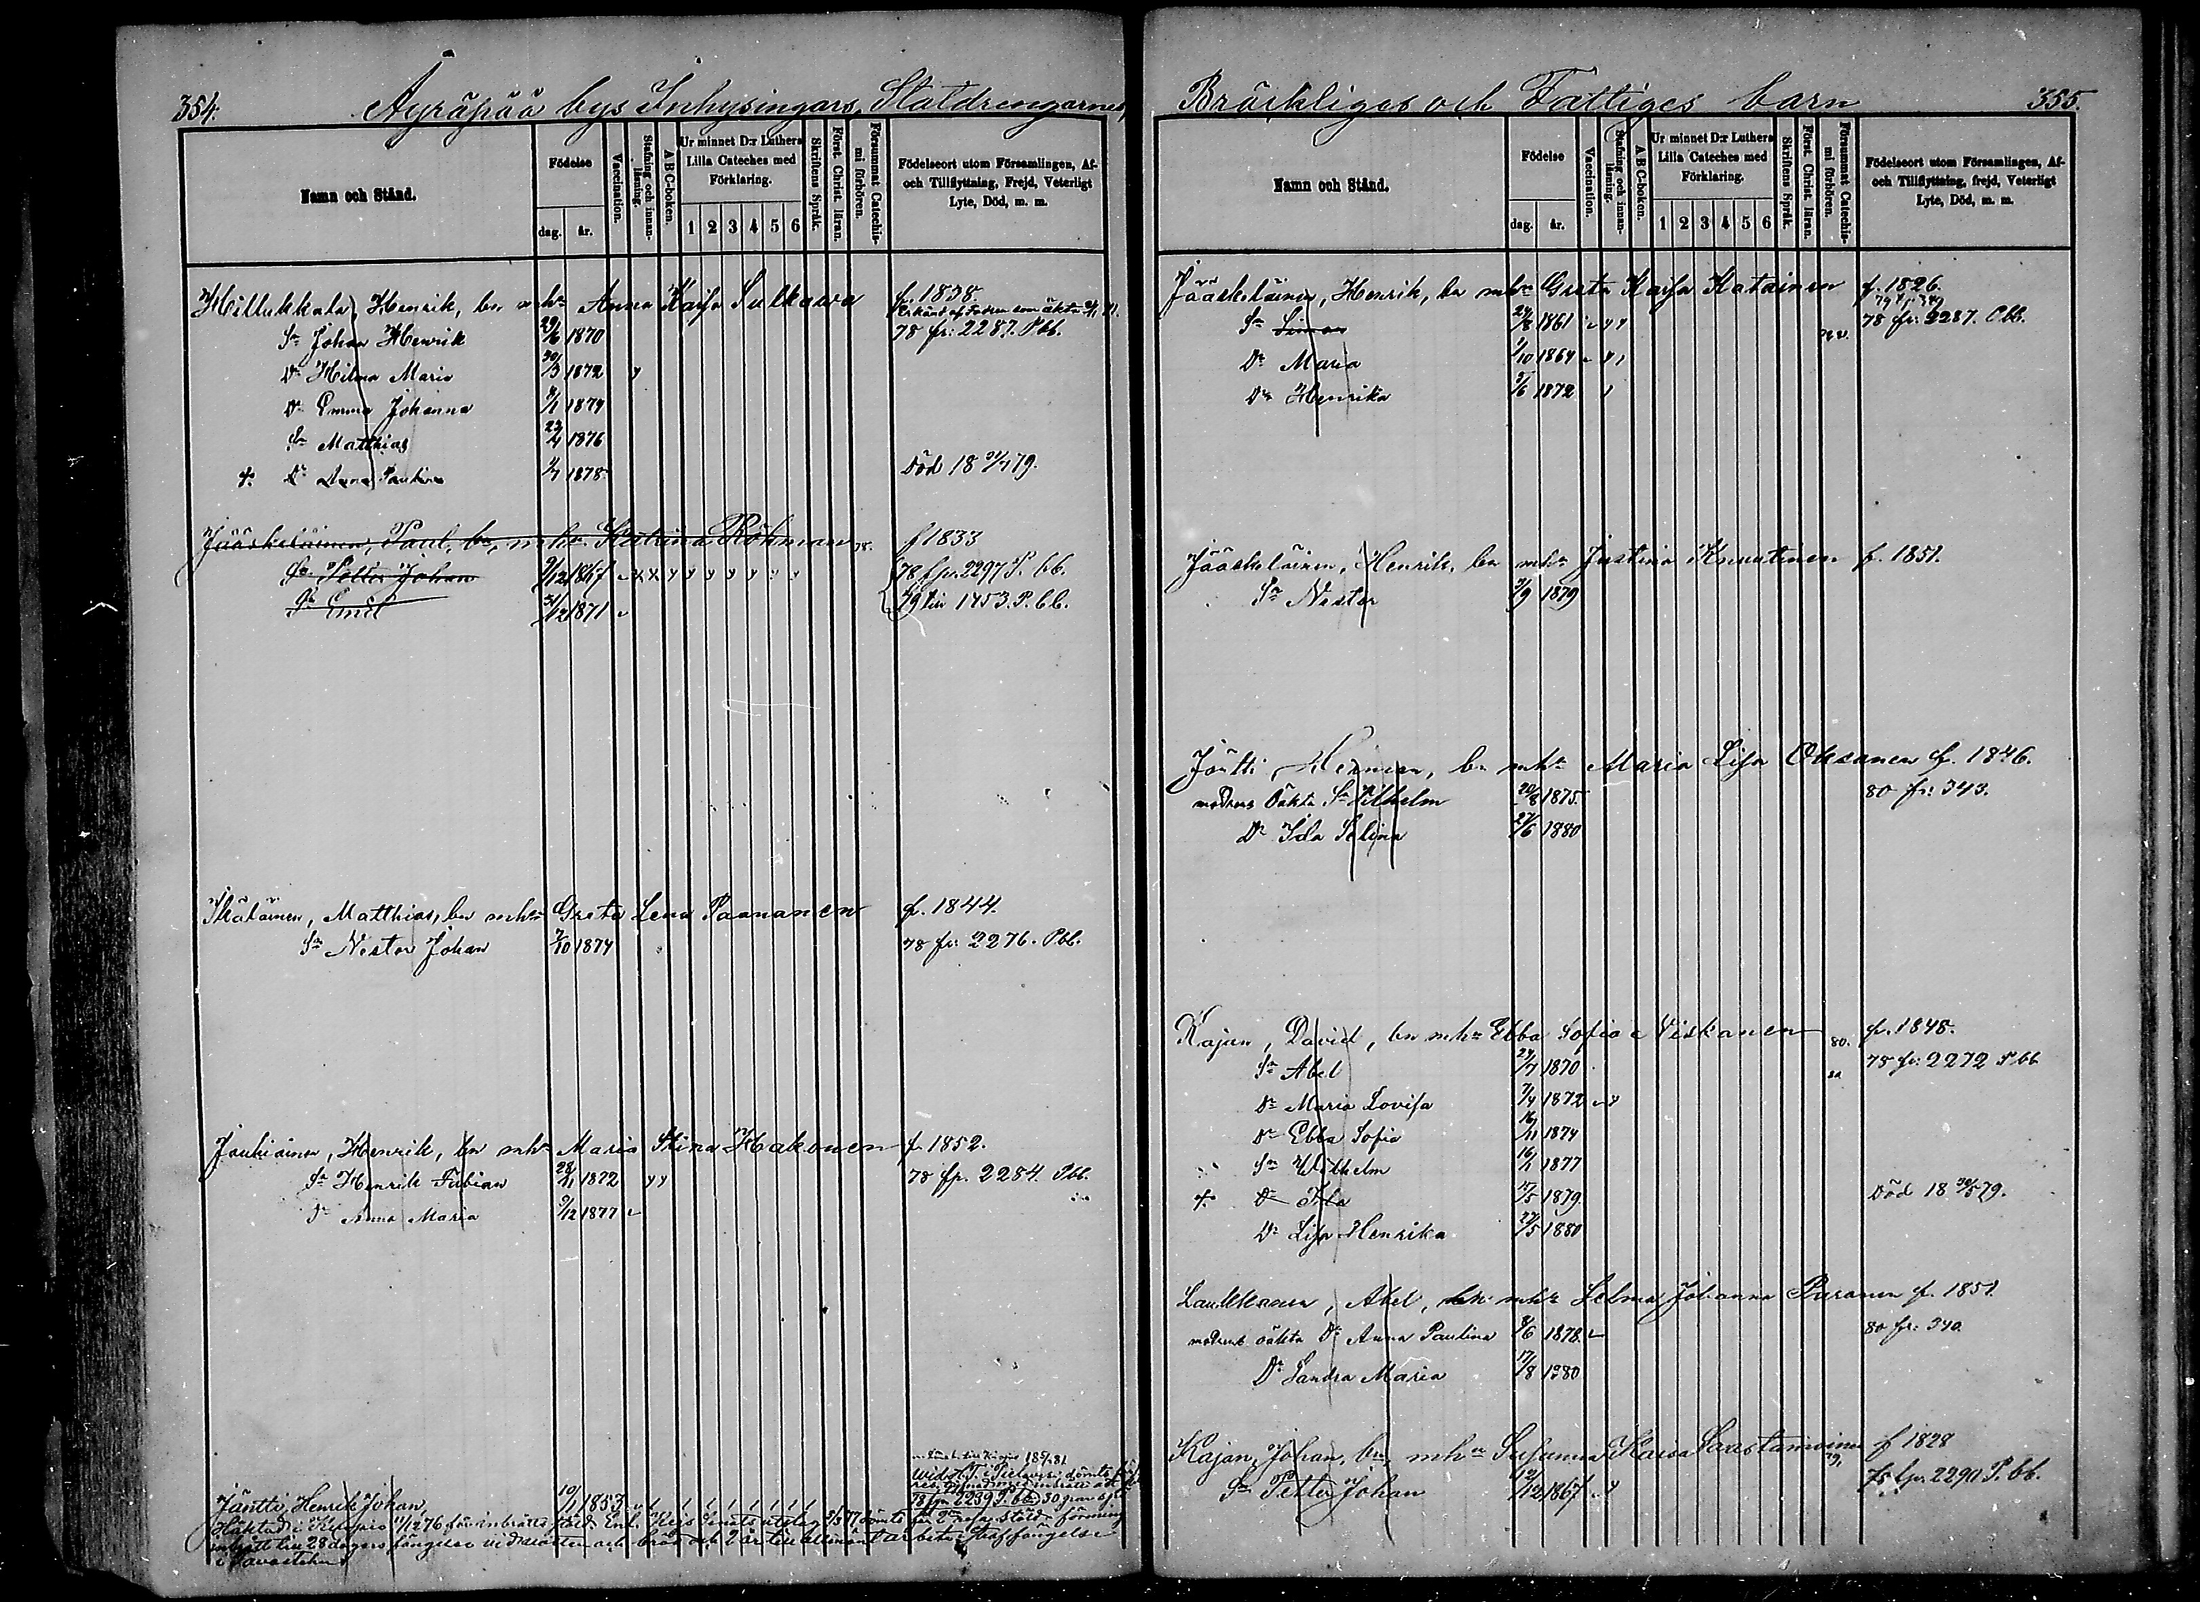 354. Äyräpää bys Inhysingars, Statdrengarnes,
Namn och Stånd.
Födelse
dag. år.
Vaccination.
Stafning och innan-läsning.
A B C-boken.
Ur minnet D:r Luthers Lilla Cateches med Förklaring.
1 2 3 4 5 6
Skriftens Språk.
Först. Christ. läran.
Försummat Catechis-mi förhören.
Födelseort utom Församlingen, Af- och Tillflyttning, Frejd, Veterligt Lyte, Död, m. m.
Hillukkala, Henrik, bn mhu Anna Kaisa Sulkawa f. 1838.
Sn Johan Henrik 29/6 1870 78 fr: 2287. Pbb.
Dr Hilma Maria 30/3 1872
Dr Emma Johanna 1874
Sn Matthias 23/4 1876
Dr Anna Paulina 1878 Död 18 79.
Jääskeläinen, Paul, bn, mhu Katrina Röhman 78. f 1833
Sn Petter Johan 1867 78 fr. 2297 P. bb.
Sn Emil 31/12 1871 79 till 1453. P. bb.
Matthias, bn mhu Greta Lena Paananen f. 1844.
Sn Nestor Johan 7/10 1874 78 fr: 2276. Pbb.
Jauhiainen, Henrik, bn mhu Maria Stina Hakonen f. 1852.
Sn Henrik Fabian 28/11 1872 78 fr. 2284. Pbb.
Dr Anna Maria 9/12 1877
Jäntti, Henrik Johan, 10/1 1853 78 fr 2259 P. bb.
Häktad i Kuopio 11/12 76 för inbrotts stöld. Enl. Kejs Senats utslag
28 dagars fängelse vid vatten och bröd och 2 år till allmänt arbete
i Tavastehus
Bräckliges och Fattiges barn 355.
Namn och Stånd.
Födelse
dag. år.
Vaccination.
Stafning och innan-läsning.
A B C-boken.
Ur minnet D:r Luthers Lilla Cateches med Förklaring.
1 2 3 4 5 6
Skriftens Språk.
Först. Christ. läran.
Försummat Catechis-mi förhören.
Födelseort utom Församlingen, Af- och Tillflyttning, frejd, Veterligt Lyte, Död, m. m.
Jääskeläinen, Henrik, bn mhu Greta Kaisa Katainen f. 1826.
Sn Simon 24/8 1861 78 fr: 2287. Pbb.
Dr Maria 1/10 1864
Dr Henrika 5/6 1872
Jääskeläinen, Henrik, bn mhu Justina Knuutinen f. 1851.
Sn Nestor 1879
Jäntti, Herman, bn mhu Maria Lisa Oksanen f. 1846.
modrens oäkta Sn Vilhelm 20/8 1875 80 fr: 343.
Dr Ida Selina 27/6 1880
Kajan, David, bn mhu Ebba Sofia Niskanen 80. f. 1848.
Sn Abel 1870 78 fr: 2272 Pbb
Dr Maria Lovisa 7/4 1872
Dr Ebba Sofia 16/11 1874
Sn Wilhelm 16/1 1877
Dr Ida 17/5 1879 Död 18 30/5 79.
Dr Lisa Henrika 27/5 1880
Laukkanen, Abel, bn mhu Selma Johanna Paranen f. 1851
modrens oäkta Dr Anna Paulina 8/6 1878 80 fr: 340
Dr Sandra Maria 17/8 1880
Kajan, Johan, bn, mhu Susanna Kaisa Saastamoinen f 1828
Sn Petter Johan 12/12 1867 78 fr. 2290 P. bb.